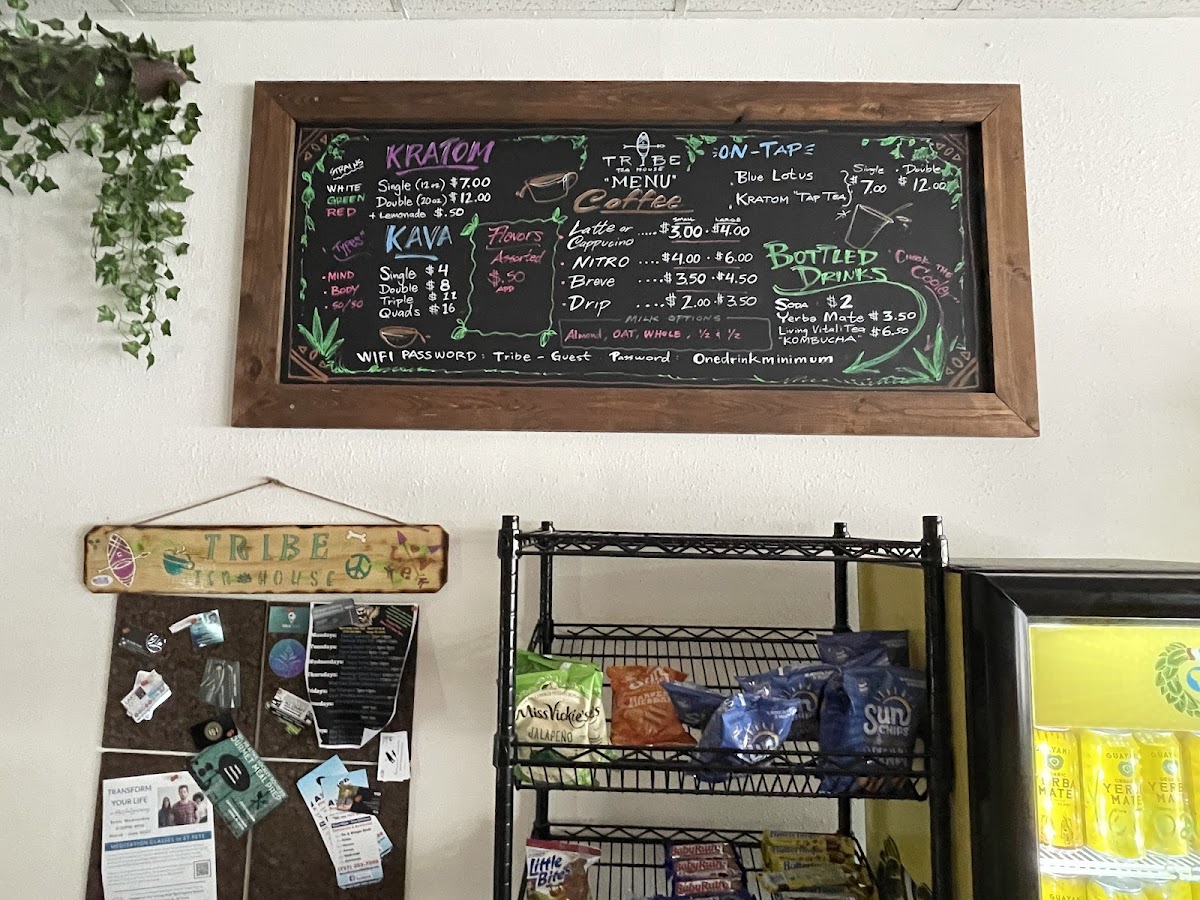 KRATOM
STRAINS
WHITE
GREEN
RED
Single (12oz) $7.00
Double (20oz) $12.00
+ Lemonade $.50
KAVA
"TYPES"
• MIND
• BODY
• 50/50
Single $4
Double $8
Triple $11
Quads $16
Flavors
Assorted
$.50
ADD
TRIBE
TEA HOUSE
"MENU"
Coffee
SMALL LARGE
Latte or Cappucino ..... $3.00 · $4.00
• NITRO .... $4.00 · $6.00
• Breve .... $3.50 · $4.50
• Drip .... $2.00 · $3.50
MILK OPTIONS
Almond, OAT, WHOLE, ½ & ½
ON-TAP
Single • Double
• Blue Lotus
• KRATOM "TAP TEA"
$7.00 $12.00
BOTTLED
DRINKS
CHECK THE
COOLER...
SODA $2
Yerba Mate $3.50
Living Vitali Tea $6.50
"KOMBUCHA"
WIFI PASSWORD: Tribe - Guest Password: Onedrinkminimum
TRIBE
TEA HOUSE
Mondays:
Tuesdays:
Wednesdays:
Thursdays:
Fridays:
TRANSFORM
YOUR LIFE
MEDITATION CLASSES IN ST PETE
Miss Vickie's
JALAPEÑO
SUN
CHIPS
Little
Bites
BabyRuth
BabyRuth
BabyRuth
Butterfinger
GUAYAKI
YERBA
MATE
GUAYAKI
YERBA
MATE
GUAYAKI
YERBA
MATE